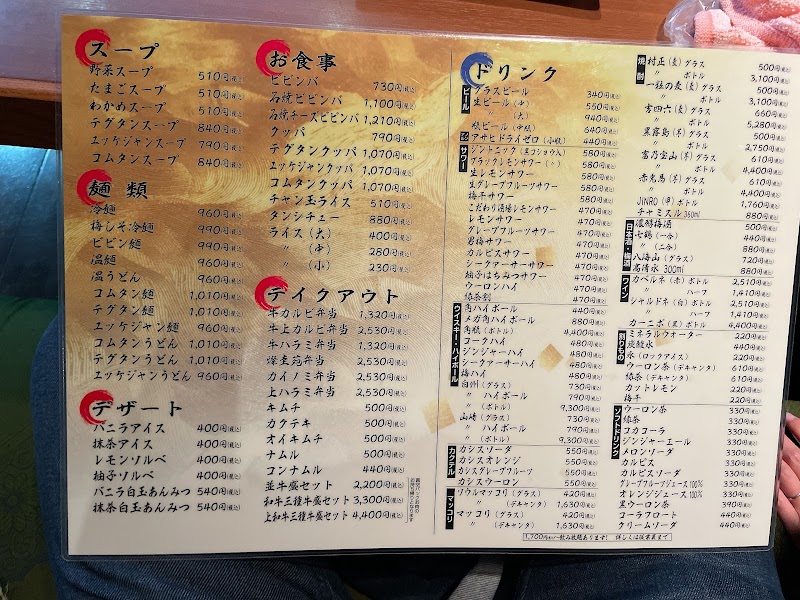 スープ
野菜スープ 510円(税込)
たまごスープ 510円(税込)
わかめスープ 510円(税込)
テグタンスープ 840円(税込)
ユッケジャンスープ 790円(税込)
コムタンスープ 840円(税込)
麺類
冷麺 960円(税込)
梅しそ冷麺 990円(税込)
ビビン麺 990円(税込)
温麺 960円(税込)
温うどん 960円(税込)
コムタン麺 1,010円(税込)
テグタン麺 1,010円(税込)
ユッケジャン麺 960円(税込)
コムタンうどん 1,010円(税込)
テグタンうどん 1,010円(税込)
ユッケジャンうどん 960円(税込)
デザート
バニラアイス 400円(税込)
抹茶アイス 400円(税込)
レモンソルベ 400円(税込)
柚子ソルベ 400円(税込)
バニラ白玉あんみつ 540円(税込)
抹茶白玉あんみつ 540円(税込)
お食事
ビビンバ 730円(税込)
石焼ビビンバ 1,100円(税込)
石焼チーズビビンバ 1,210円(税込)
クッパ 790円(税込)
テグタンクッパ 1,070円(税込)
ユッケジャンクッパ 1,070円(税込)
コムタンクッパ 1,070円(税込)
チャン玉ライス 510円(税込)
タンシチュー 880円(税込)
ライス(大) 400円(税込)
〃(中) 280円(税込)
〃(小) 230円(税込)
テイクアウト
牛カルビ弁当 1,320円(税込)
牛上カルビ弁当 2,530円(税込)
牛ハラミ弁当 1,320円(税込)
弁当 2,530円(税込)
カイノミ弁当 2,530円(税込)
上ハラミ弁当 2,530円(税込)
キムチ 500円(税込)
カクテキ 500円(税込)
オイキムチ 500円(税込)
ナムル 500円(税込)
コンナムル 440円(税込)
並牛盛セット 2,200円(税込)
和牛三種牛盛セット 3,300円(税込)
上和牛三種牛盛セット 4,400円(税込)
ドリンク
ビール
グラスビール 340円(税込)
生ビール(中) 550円(税込)
〃(大) 940円(税込)
瓶ビール(中瓶) 640円(税込)
アサヒドライゼロ(小瓶) 440円(税込)
サワー
ジントニック(黒コショウ入) 580円(税込)
ブラックレモンサワー(〃) 580円(税込)
生レモンサワー 580円(税込)
生グレープフルーツサワー 580円(税込)
梅干サワー 580円(税込)
こだわり酒場レモンサワー 470円(税込)
レモンサワー 470円(税込)
グレープフルーツサワー 470円(税込)
君梅サワー 470円(税込)
カルピスサワー 470円(税込)
シークァーサーサワー 470円(税込)
柚子はちみつサワー 470円(税込)
ウーロンハイ 470円(税込)
緑茶割 470円(税込)
ウイスキー・ハイボール
角ハイボール 440円(税込)
メガ角ハイボール 880円(税込)
角瓶(ボトル) 4,400円(税込)
コークハイ 480円(税込)
ジンジャーハイ 480円(税込)
シークァーサーハイ 480円(税込)
梅ハイ 480円(税込)
白州(グラス) 730円(税込)
〃 ハイボール 790円(税込)
〃(ボトル) 9,300円(税込)
山崎(グラス) 730円(税込)
〃 ハイボール 790円(税込)
〃(ボトル) 9,300円(税込)
カクテル
カシスソーダ 550円(税込)
カシスオレンジ 550円(税込)
カシスグレープフルーツ 550円(税込)
カシスウーロン 550円(税込)
マッコリ
ソウルマッコリ(グラス) 420円(税込)
〃(デキャンタ) 1,630円(税込)
マッコリ(グラス) 420円(税込)
〃(デキャンタ) 1,630円(税込)
焼酎
村正(麦)グラス 500円(税込)
〃 ボトル 3,100円(税込)
一粒の麦(麦)グラス 500円(税込)
〃 ボトル 3,100円(税込)
(麦)グラス 660円(税込)
〃 ボトル 5,280円(税込)
黒霧島(芋)グラス 500円(税込)
〃 ボトル 2,750円(税込)
富乃宝山(芋)グラス 610円(税込)
〃 ボトル 4,400円(税込)
赤兎馬(芋)グラス 610円(税込)
〃 ボトル 4,400円(税込)
JINRO(甲)ボトル 1,760円(税込)
チャミスル360ml 880円(税込)
日本酒・梅酒
濃醇梅酒 500円(税込)
七鶴(一合) 440円(税込)
〃(二合) 880円(税込)
八海山(グラス) 720円(税込)
高清水 300ml 880円(税込)
ワイン
カベルネ(赤)ボトル 2,510円(税込)
〃 ハーフ 1,410円(税込)
シャルドネ(白)ボトル 2,510円(税込)
〃 ハーフ 1,410円(税込)
カーニボ(黒)ボトル 4,400円(税込)
割りもの
ミネラルウォーター 220円(税込)
炭酸水 440円(税込)
氷(ロックアイス) 220円(税込)
ウーロン茶(デキャンタ) 610円(税込)
緑茶(デキャンタ) 610円(税込)
カットレモン 220円(税込)
梅干 220円(税込)
ソフトドリンク
ウーロン茶 330円(税込)
緑茶 330円(税込)
コカコーラ 330円(税込)
ジンジャーエール 330円(税込)
メロンソーダ 330円(税込)
カルピス 330円(税込)
カルピスソーダ 330円(税込)
グレープフルーツジュース100% 330円(税込)
オレンジジュース100% 330円(税込)
黒ウーロン茶 390円(税込)
コーラフロート 440円(税込)
クリームソーダ 440円(税込)
1,700円(税込)〜飲み放題あります! 詳しくは従業員まで